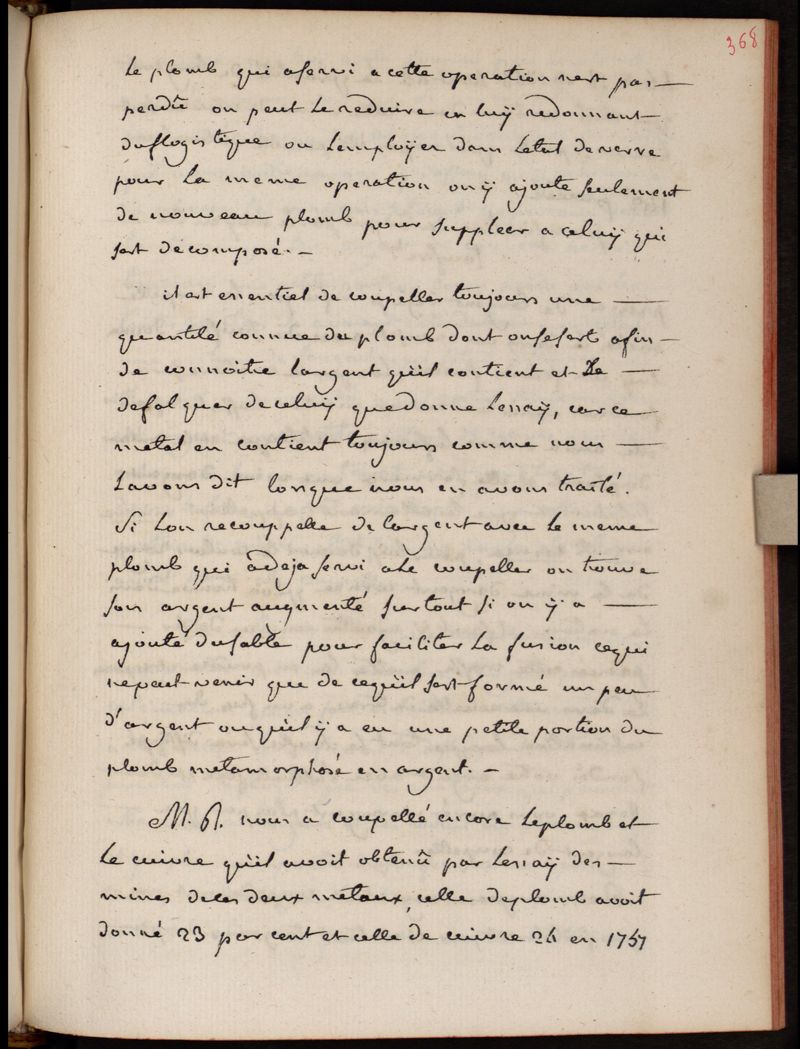 368
Le plomb qui a servi a cette operation nest pas —
perdû on peut Le reduire en luÿ redonnant
du flogistique ou Lemploÿer dans Letat de verre
pour La meme operation on ÿ ajoute seulement
de nouveau plomb pour suppleer a celuÿ qui
sest decomposé. —
il est essentiel de coupeller toujours une —
quantité connue du plomb dont on se sert afin —
de connoitre l'argent qu'il contient et Le —
defalquer de celuÿ que donne Lessaÿ, car ce
metal en contient toujours comme nous —
Lavons dit lorsque nous en avons traité.
Si Lon recouppelle de largent avec Le meme
plomb qui a deja servi a Le coupeller on trouve
son argent augmenté surtout si on ÿ a —
ajouté du sable pour faciliter La fusion ce qui
ne peut venir que de ce qu'il sest formé un peu
d'argent ou qu'il ÿ a eu une petite portion du
plomb metamorphosé en argent. —
M. R. nous a coupellé encore Le plomb et
Le cuivre qu'il avoit obtenû par Lessaÿ des —
mines de ces deux metaux, celle de plomb avoit
donné 23 par cent et celle de cuivre 24 en 1757